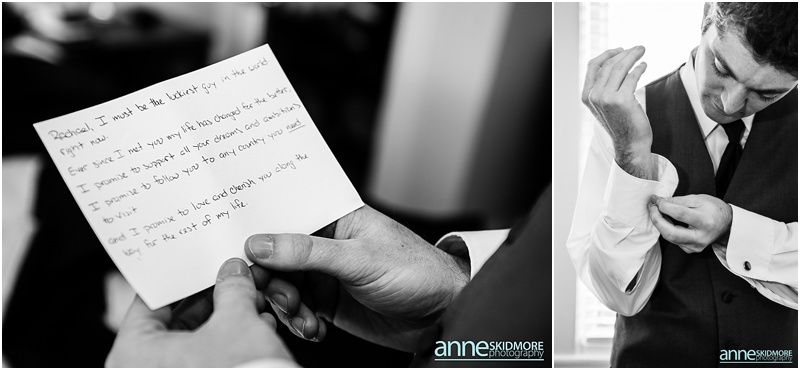 Rachael, I must be the luckiest guy in the world
right now.
Ever since I met you my life has changed for the better,
I promise to support all your dreams and ambitions
I promise to follow you to any country you need
to visit
and I promise to love and cherish you along the
way for the rest of my life.
anne SKIDMORE
photography
anne SKIDMORE
photography